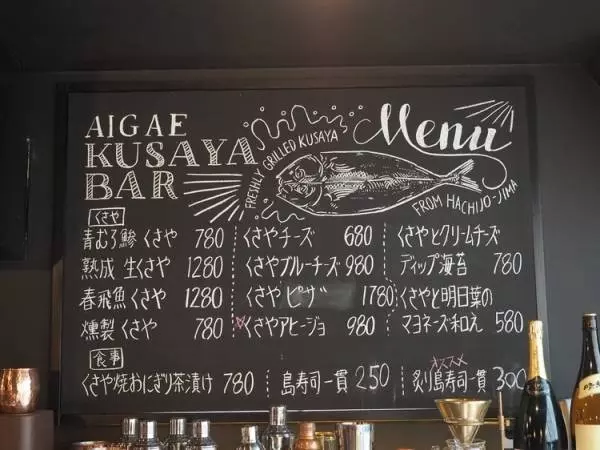 AIGAE
KUSAYA
BAR
FRESHLY GRILLED KUSAYA
Menu
FROM HACHIJO-JIMA
くさや
青むろ鯵くさや 780
熟成 生くさや 1280
春飛魚くさや 1280
燻製くさや 780
くさやチーズ 680
くさやブルーチーズ 980
くさやピザ 1780
くさやアヒージョ 980
くさやとクリームチーズ
ディップ海苔 780
くさやと明日葉の
マヨネーズ和え 580
食事
くさや焼おにぎり茶漬け 780
島寿司一貫 250
オススメ
炙り島寿司一貫 300